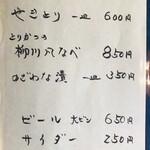 やきとり 一皿 600円
とりかつ
柳川風なべ 850円
のざわな漬 一皿 350円
ビール 大ビン 650円
サイダー 250円